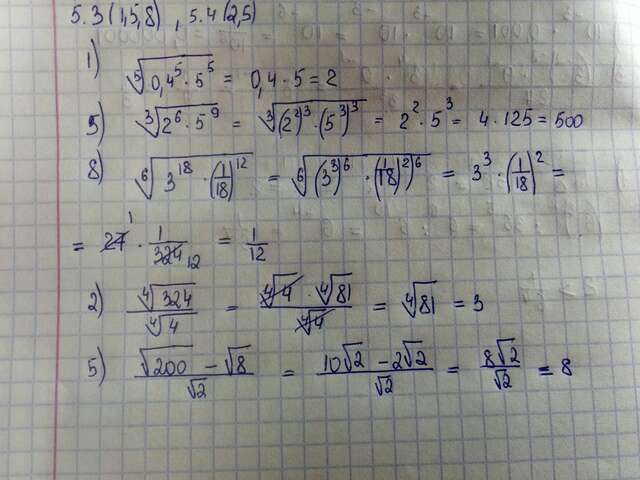 5.3 (1,5,8), 5.4 (2,5)
1) ⁵√(0,4⁵ · 5⁵) = 0,4 · 5 = 2
5) ³√(2⁶ · 5⁹) = ³√((2²)³ · (5³)³) = 2² · 5³ = 4 · 125 = 500
8) ⁶√(3¹⁸ · (1/18)¹²) = ⁶√((3³)⁶ · ((1/18)²)⁶) = 3³ · (1/18)² =
= 27 1 · 1/324 12 = 1/12
2) ⁴√324/⁴√4 = (⁴√4 · ⁴√81)/⁴√4 = ⁴√81 = 3
5) (√200 - √8)/√2 = (10√2 - 2√2)/√2 = 8√2/√2 = 8